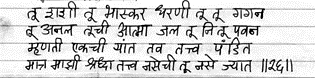 तू शशी तू भास्कर धरणी तू तू गगन
तू अनल तूची आत्मा जल तू नि तू पवन
म्हणती एकची यांत तव तत्त्व पंडित
मात्र माझी श्रध्दा तत्त्व नसेची तू नसे ज्यात ॥२६॥